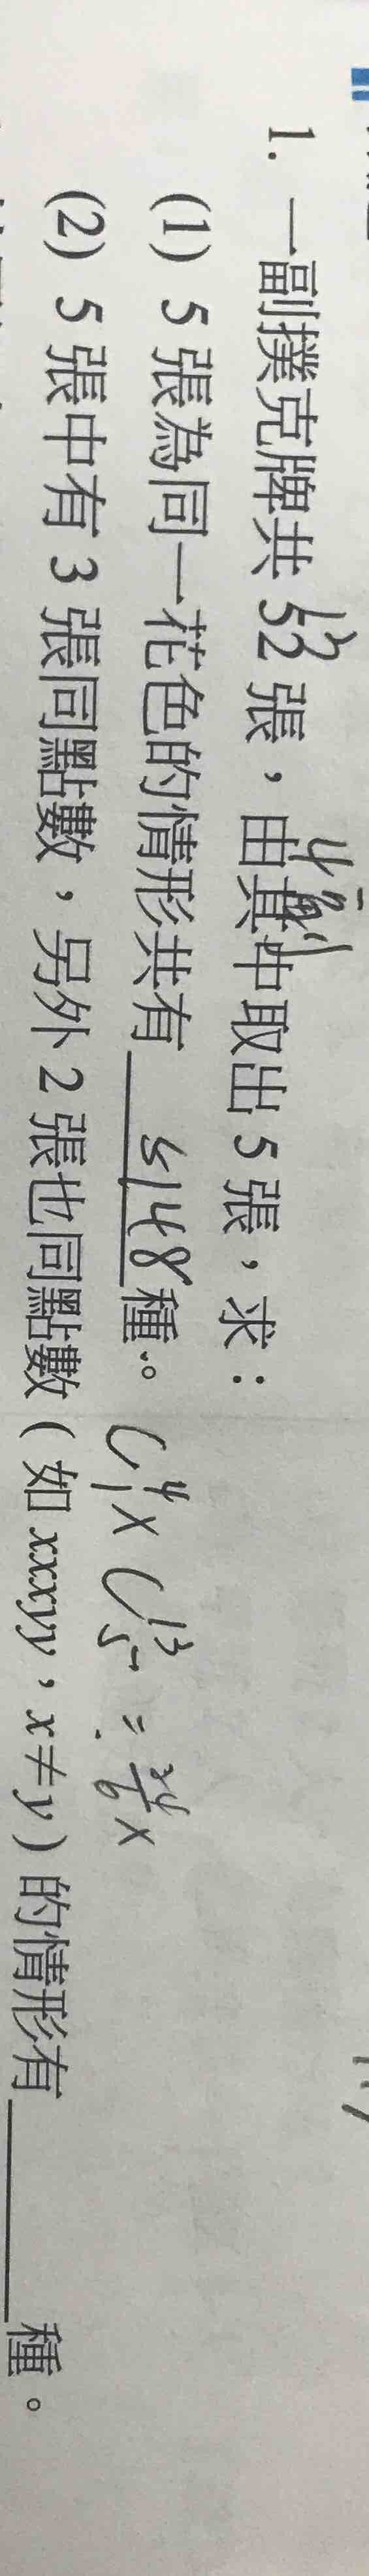 1. 一副撲克牌共 52 張，由其中取出 5 張，求：
(1) 5 張為同一花色的情形共有 5148 種。
C⁴₁ × C¹³₅ =
(2) 5 張中有 3 張同點數，另外 2 張也同點數（如 xxxyy，x≠y）的情形有＿＿＿＿種。